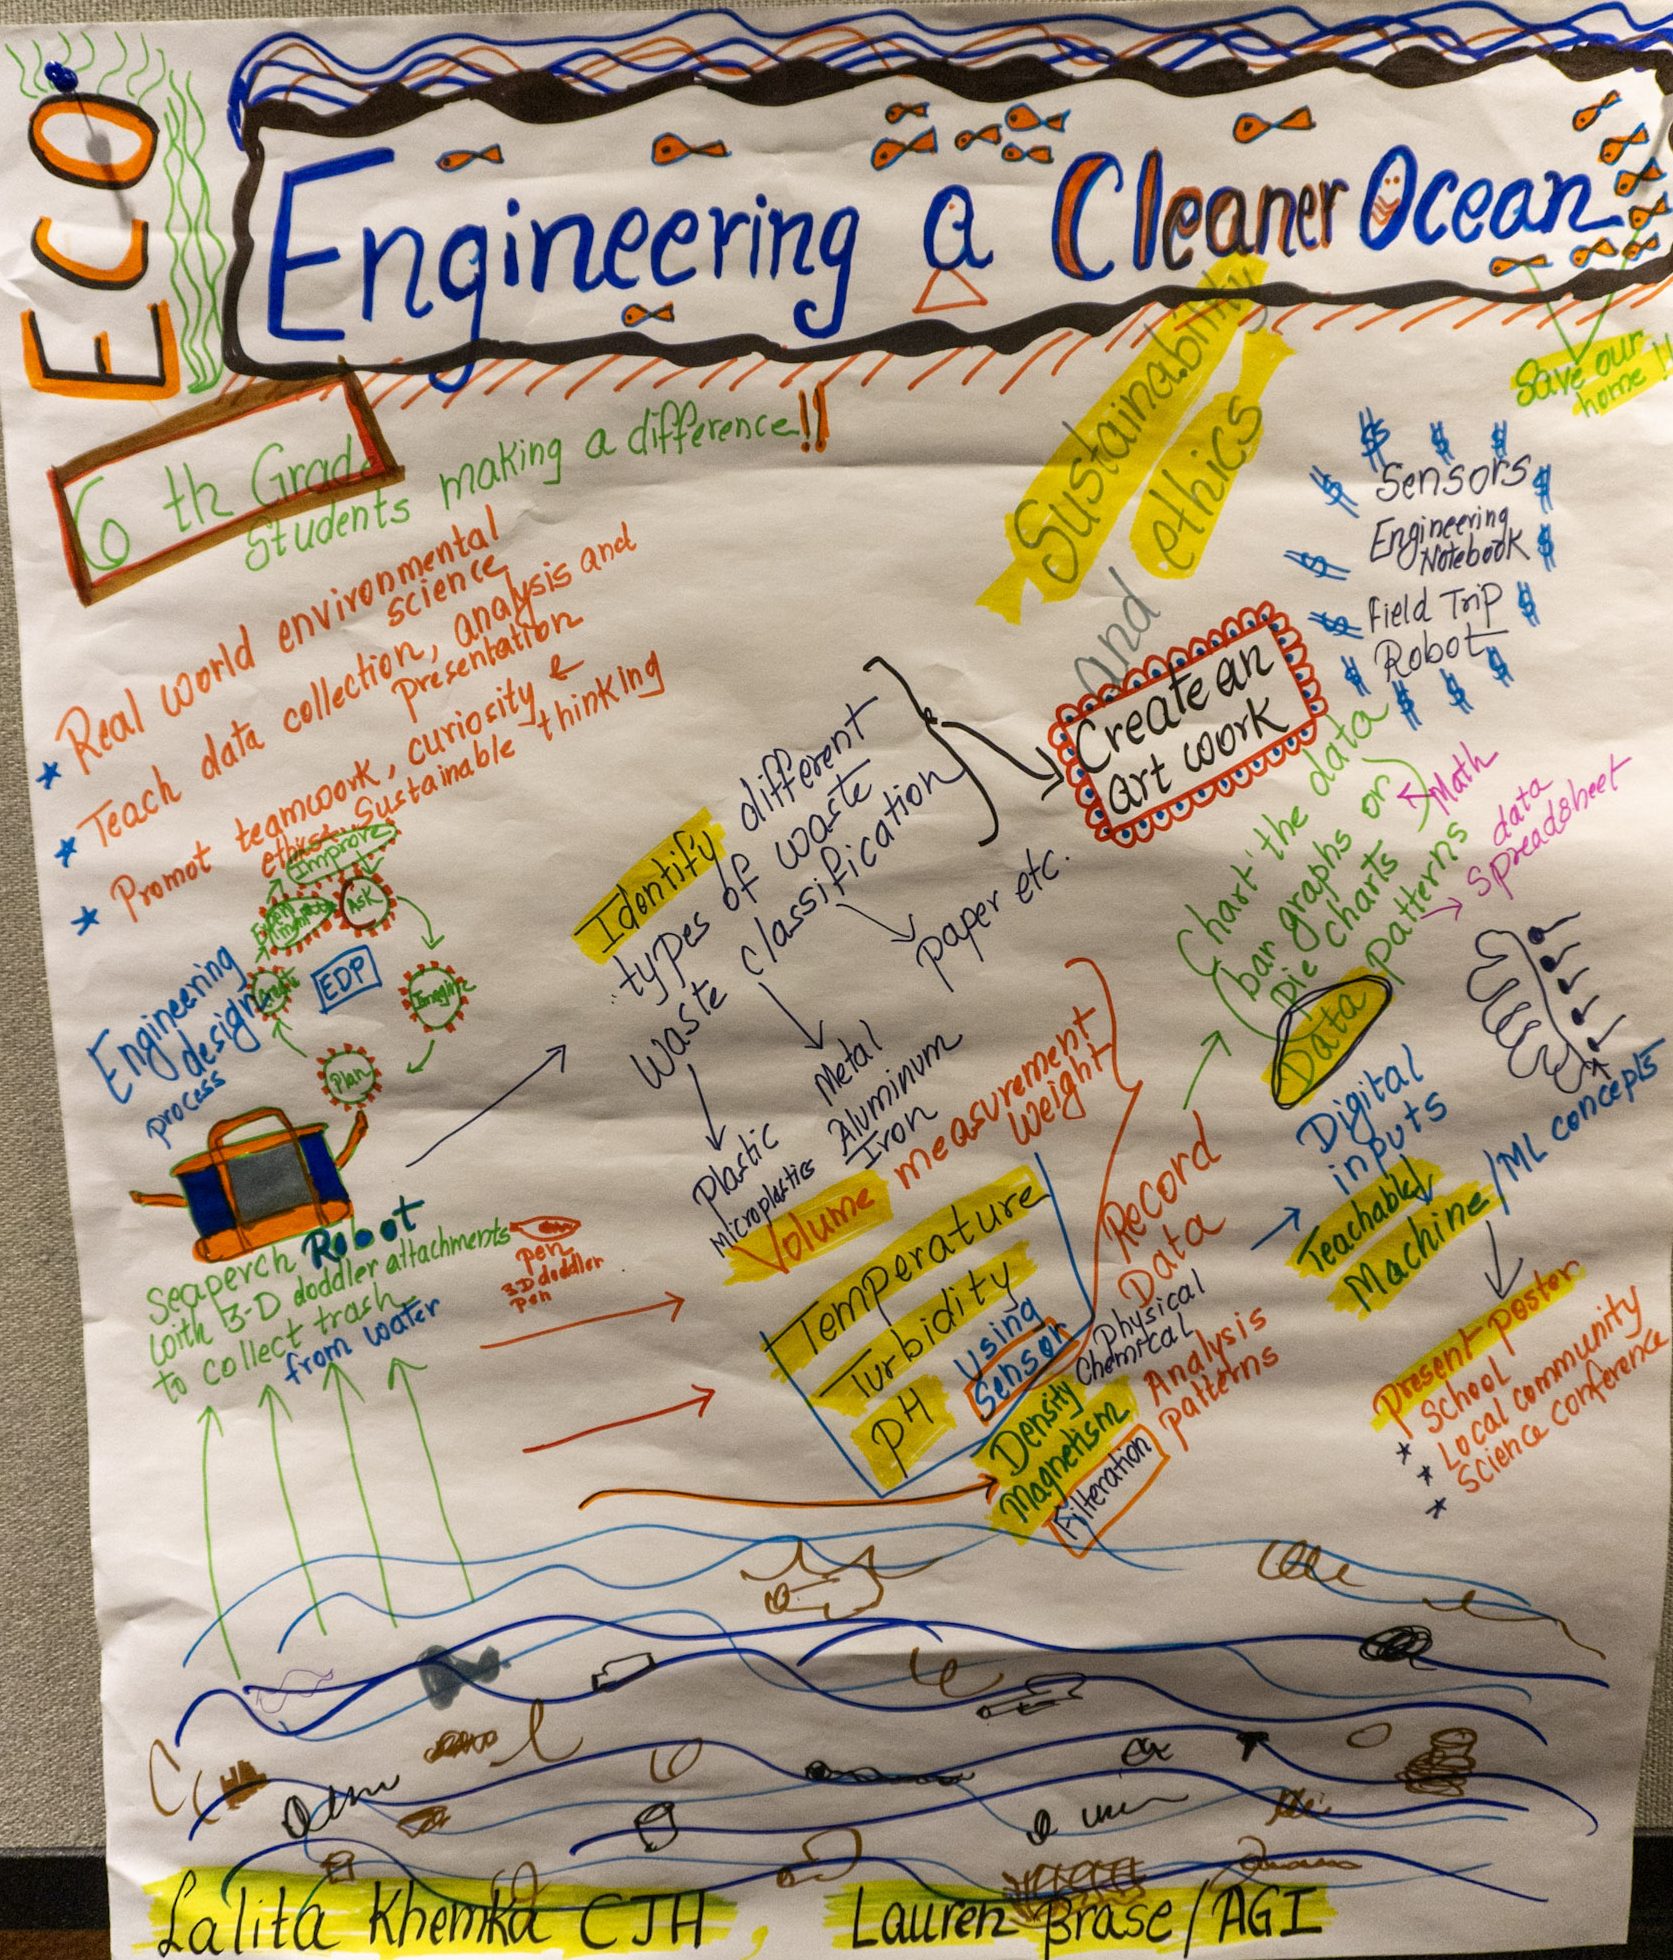 ECO
Engineering a Cleaner Ocean
Save our
home !!
6th Grade
Students making a difference!!
Real world environmental
science
Teach data collection, analysis and
presentation
Promot teamwork, curiosity &
ethics. Sustainable thinking
Sustainability
and ethics
$ $ $
$ Sensors $
Engineering
$ Notebook $
$ Field Trip $
$ Robot $
$ $
Engineering
design
process
EDP
Improve
Ask
Imagine
Plan
Create
Seaperch Robot
with 3-D doddler attachments
to collect trash
from water
pen
3-D doddler
Pen
Identify different
types of waste
waste classification
Plastic
Microplastics
Metal
Aluminum
Iron
paper etc.
Create an
art work
Volume measurement
weight
Temperature
Turbidity
PH
Using
Sensor
Density
Magnetism
Filteration
Record
Data
Physical
Chemical
Analysis
patterns
Chart the data
bar graphs or
pie charts
patterns
Math
data
Spreadsheet
Data
Digital
inputs
Teachable
Machine/ML concepts
Present poster
School
Local community
Science conference
Lalita Khemka CJH, Lauren Brase/AGI